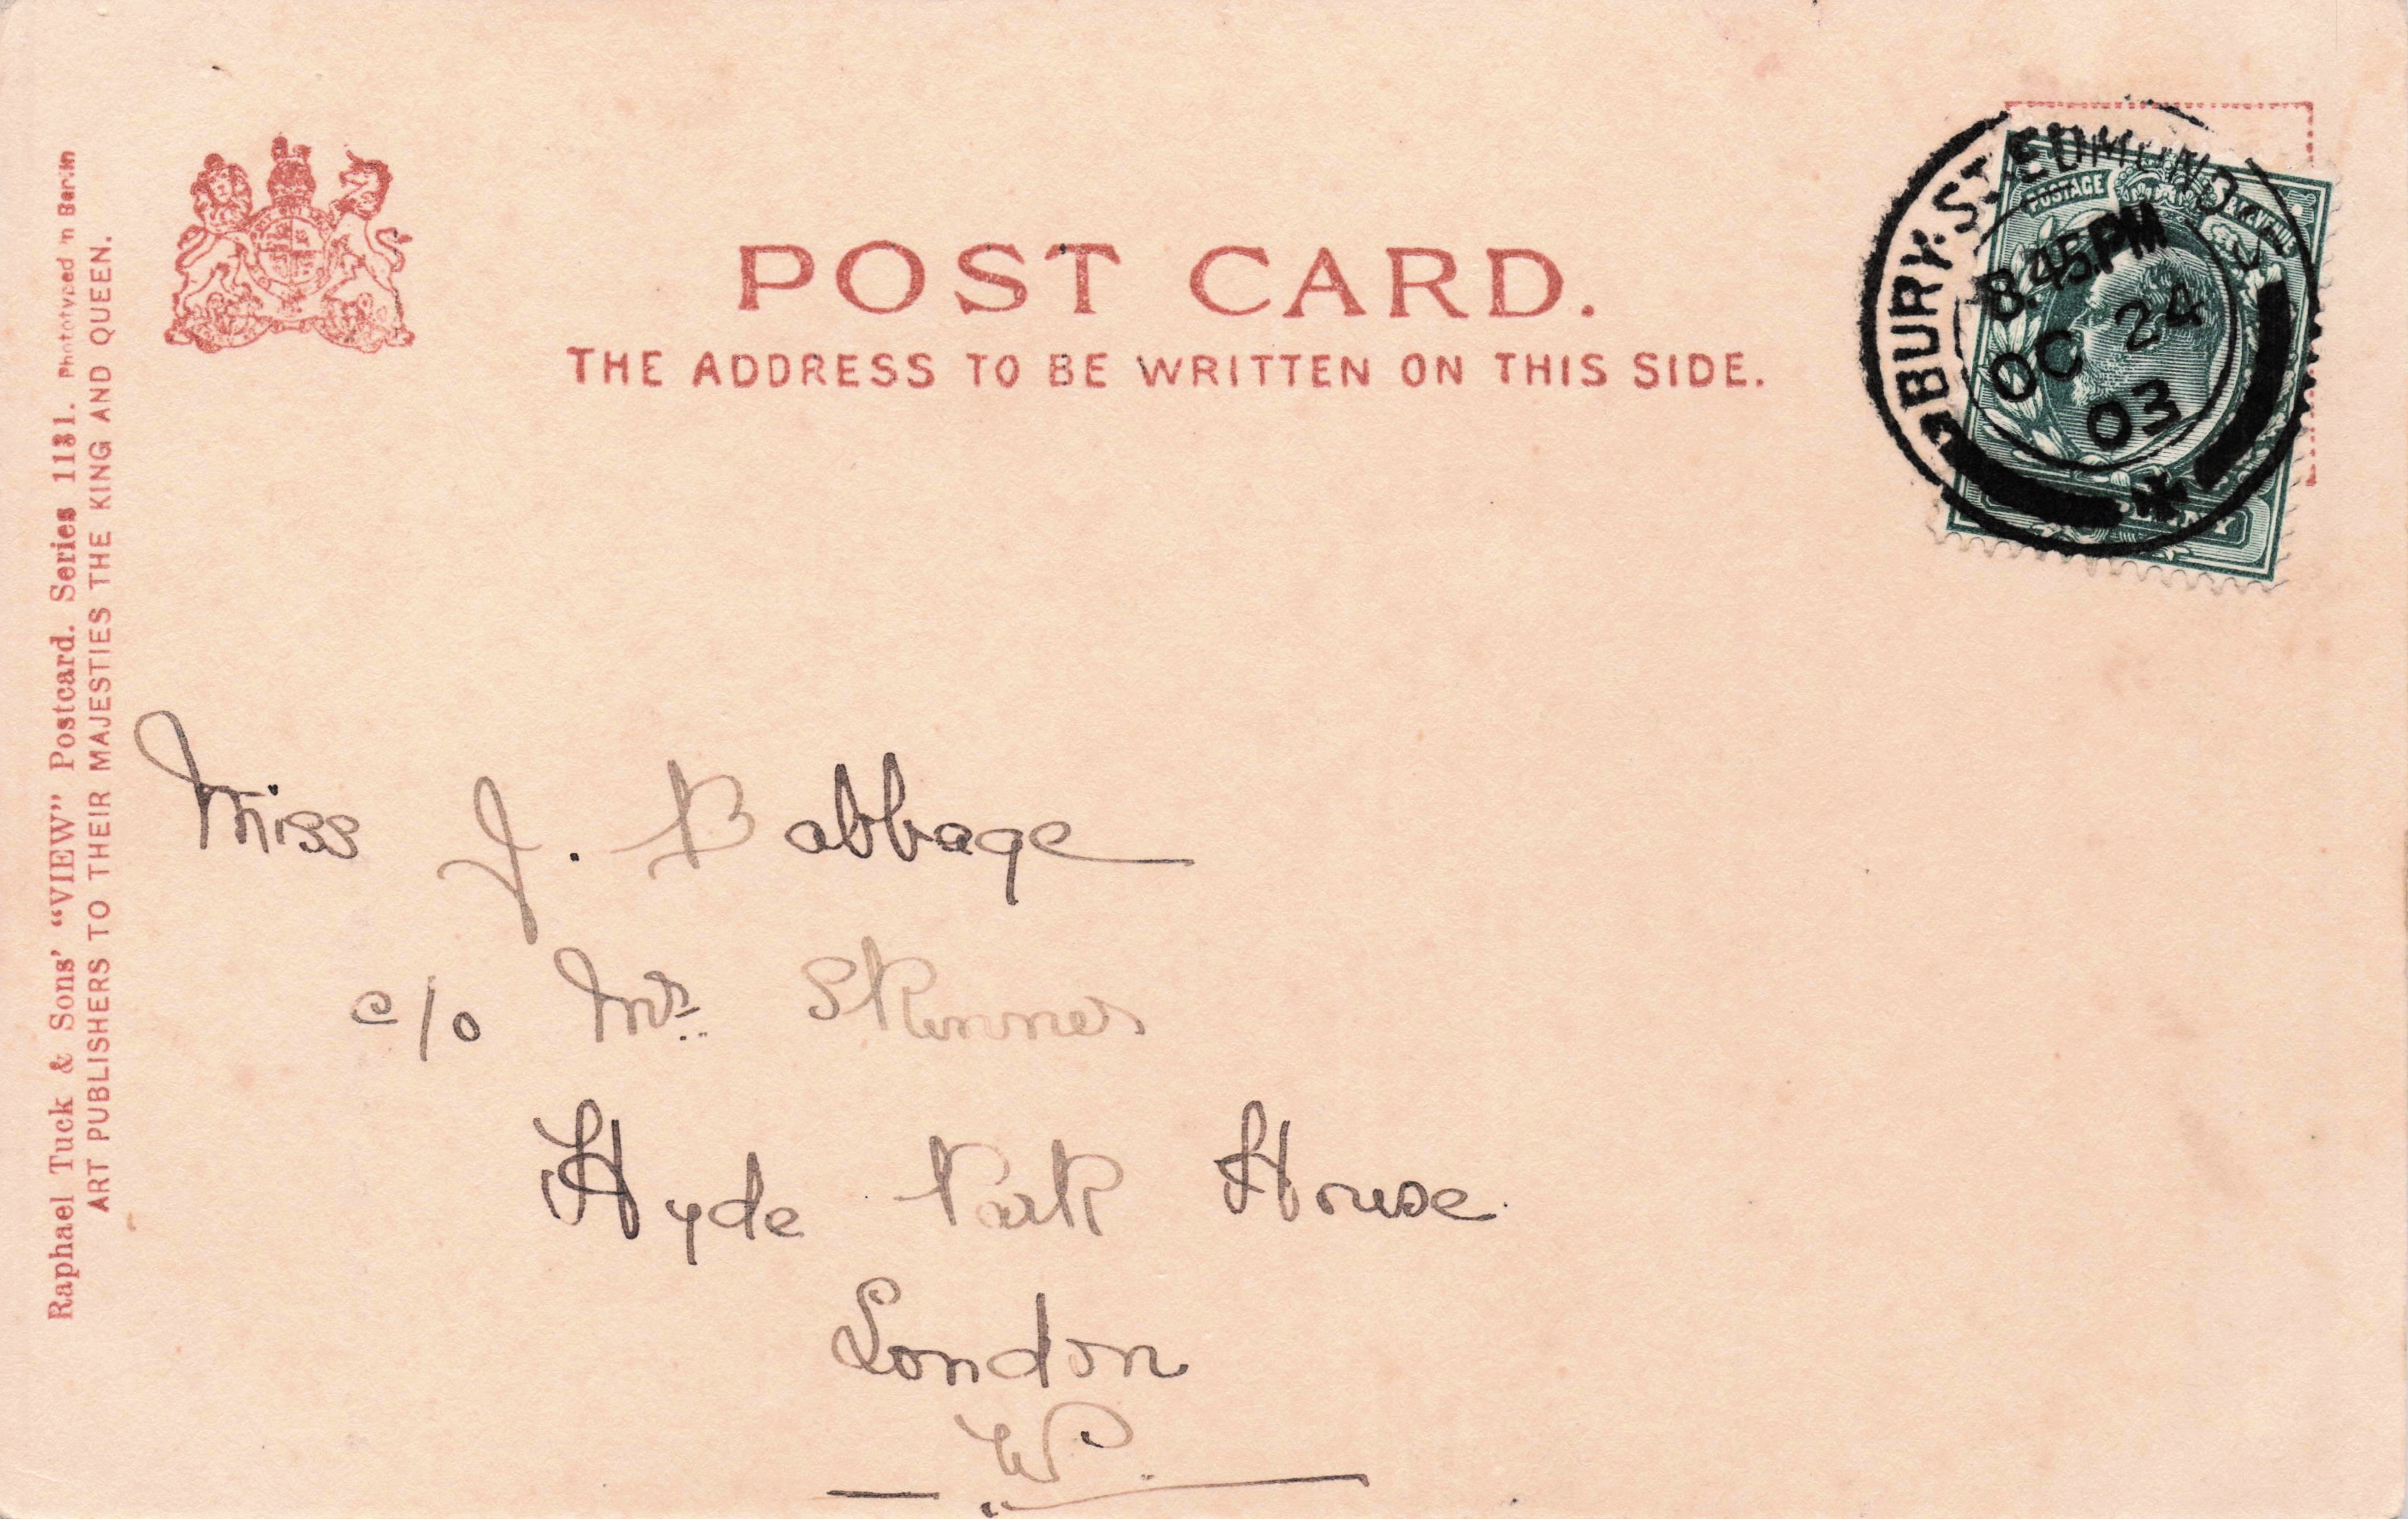 POST CARD.
THE ADDRESS TO BE WRITTEN ON THIS SIDE.
Raphael Tuck & Sons' "VIEW" Postcard. Series 1131. Phototyped in Berlin
ART PUBLISHERS TO THEIR MAJESTIES THE KING AND QUEEN.
BURY·ST·EDMUNDS
8.45PM
OC 24
03
POSTAGE & REVENUE
Miss J. Babbage
c/o Mr. Skinner
Hyde Park House
London
W.